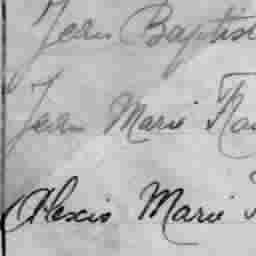 Jean Baptis
Jean Marie
Alexis Marie